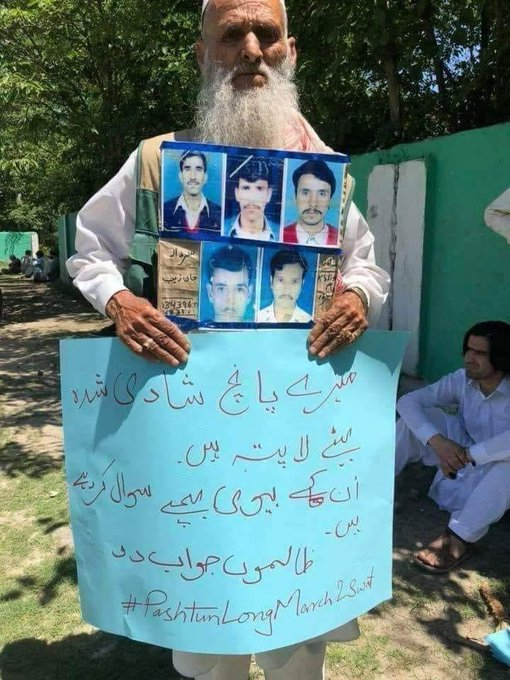 سردار
میرے پانچ شادی شدہ
بیٹے لا پتہ ہیں۔
اُن کے بیوی بچے سوال کر رہے
ہیں۔
ظالموں جواب دو
#PashtunLongMarch2Swat